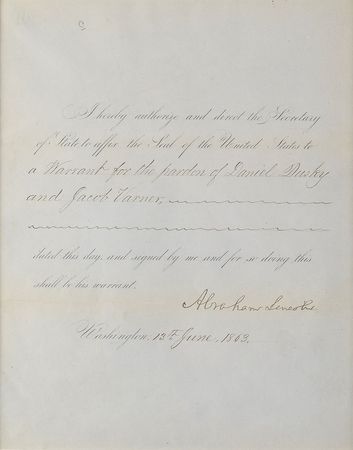 I hereby authorize and direct the Secretary
of State to affix the Seal of the United States to
a Warrant for the pardon of Daniel Dusky
and Jacob Varner,
dated this day, and signed by me and for so doing this
shall be his warrant.
Abraham Lincoln.
Washington, 13th June, 1863.